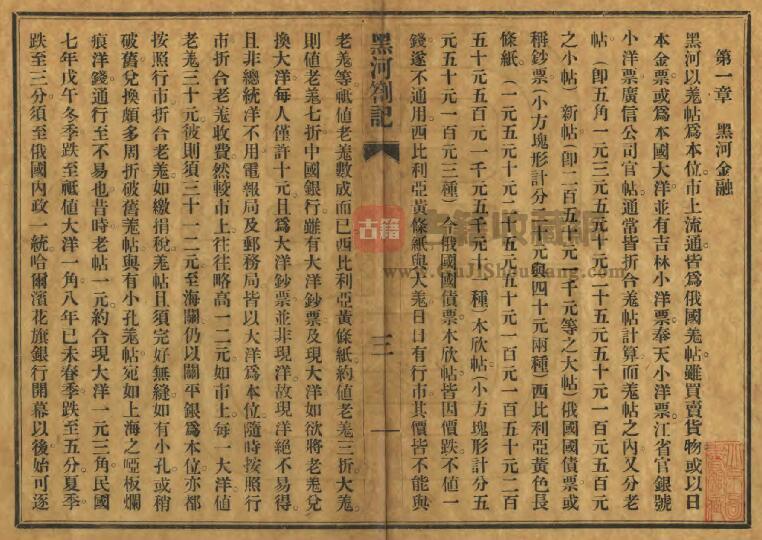 第一章　黑河金融
黑河以羌帖爲本位。市上流通皆爲俄國羌帖。雖買賣貨物或以日
本金票或爲本國大洋並有吉林小洋票。奉天小洋票。江省官銀號
小洋票廣信公司官帖。通常皆折合羌帖計算。而羌帖之內又分老
帖（卽五角一元三元五元十元二十五元五十元一百元五百元
之小帖）新帖（卽二百五十元一千元等之大帖）俄國國債票或
稱鈔票（小方塊形計分二十元與四十元兩種）西比利亞黃色長
條紙（一元五元十元二十五元五十元一百元一百五十元二百
五十元五百元一千元五千元十一種）木欣帖（小方塊形計分五
元五十元一百元三種）今俄國國債票木欣帖皆因價跌不値一
錢遂不通用。西比利亞黃條紙與大羌日日有行市其價皆不能與
黑河劄記
三
老羌等。祇値老羌數成而已。西比利亞黃條紙約値老羌三折大羌
則値老羌七折。中國銀行雖有大洋鈔票及現大洋。如欲將老羌兌
換大洋。每人僅許十元。且爲大洋鈔票。並非現洋。故現洋絕不易得。
且非總統洋不用。電報局及郵務局皆以大洋爲本位。隨時按照行
市折合老羌收費。然較市上往往略高一二元。如市上每一大洋値
老羌三十元。彼則須三十一二元。至海關仍以關平銀爲本位。亦都
按照行市折合老羌。如繳捐稅。羌帖且須完好無縫。如有小孔。或稍
破舊。兌換頗多周折。破舊羌帖與有小孔羌帖。宛如上海之啞板爛
痕洋錢。通行至不易也。昔時老帖一元。約合現大洋一元三角。民國
七年戊午冬季。跌至祗値大洋一角。八年己未春季。跌至五分。夏季
跌至三分。須至俄國內政一統。哈爾濱花旗銀行開幕以後。始可逐
古籍
www.GuJiShouCang.com